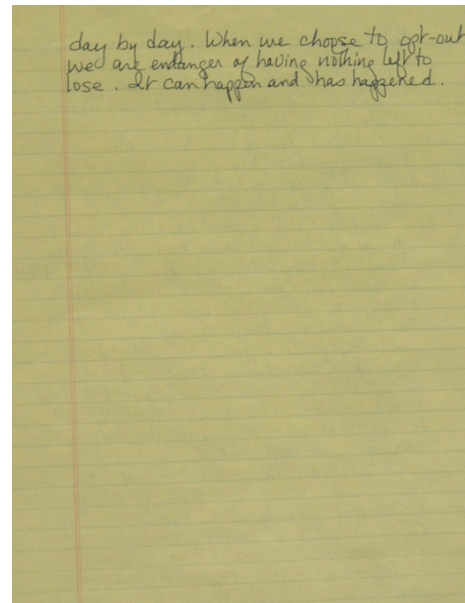 day by day. When we choose to opt-out
we are endanger of having nothing left to
lose. It can happen and has happened.